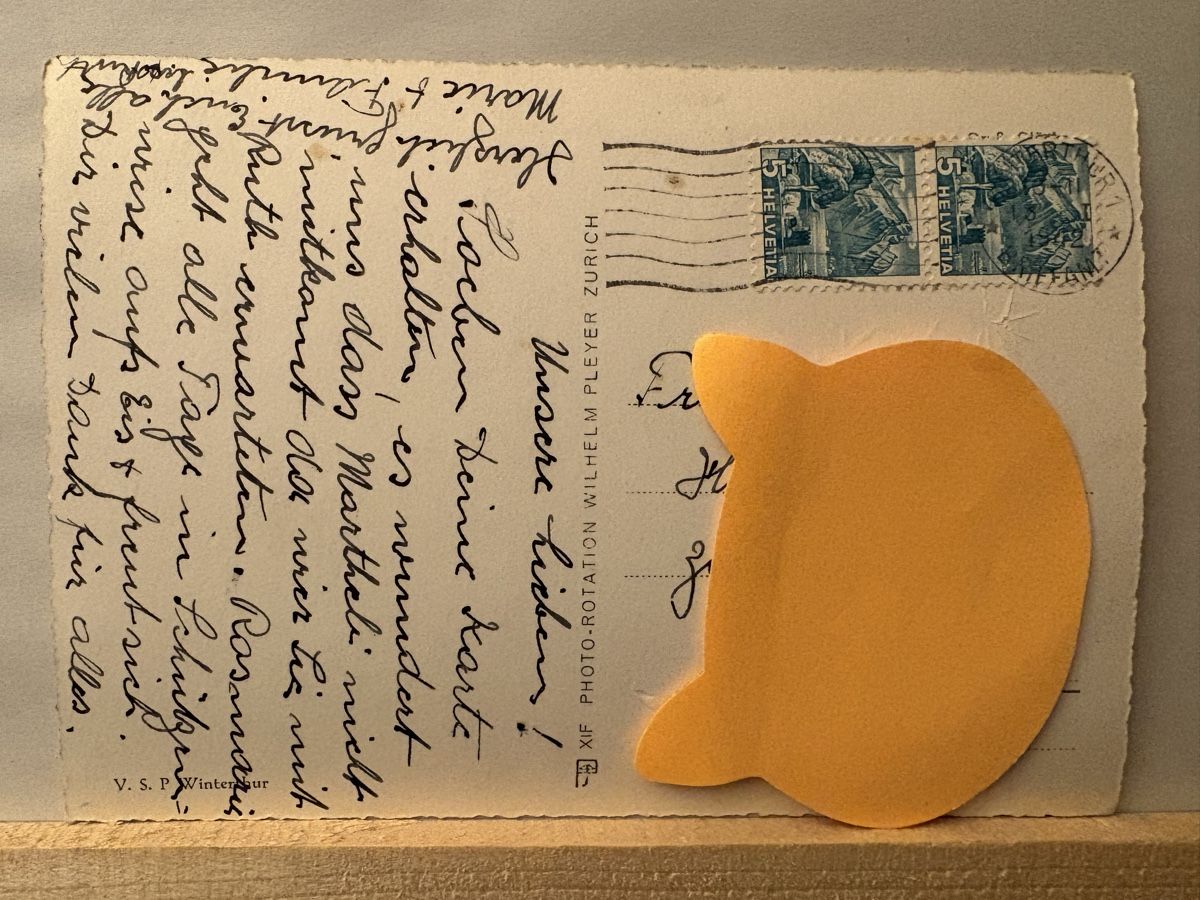 Unsere Lieben!
Soeben Deine Karte
erhalten, es wundert
uns dass Martheli nicht
mitkomt da wir Sie mit
Ruth erwarteten. Rosmarie
geht alle Tage in Schützen-
wiese aufs Eis & freut sich.
Dir vielen Dank für alles.
Herzlich grüsst Euch alle
Marie & Familie
V. S. P. Winterthur
XIF PHOTO-ROTATION WILHELM PLEYER ZÜRICH
5 HELVETIA
5 HELVETIA
Fr
H